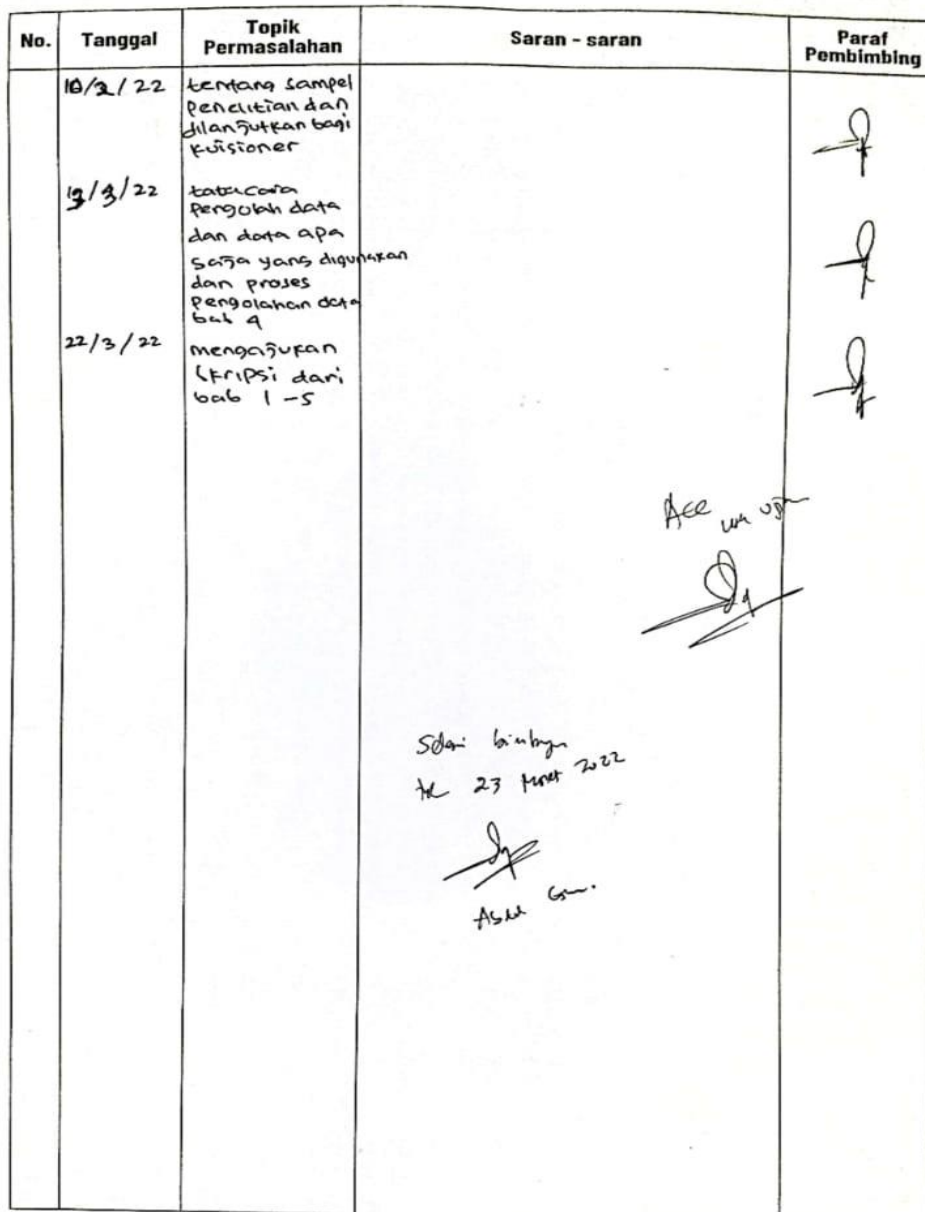 No.
Tanggal
Topik
Permasalahan
Saran - saran
Paraf
Pembimbing
/ 22
tentang sampel
penelitian dan
dilanjutkan bagi
kuisioner
/22
tatacara
pengolah data
dan data apa
saja yang digunakan
dan proses
pengolahan data
bab 4
22/3/22
mengajukan
skripsi dari
bab 1 - 5
Acc
23 Maret 2022